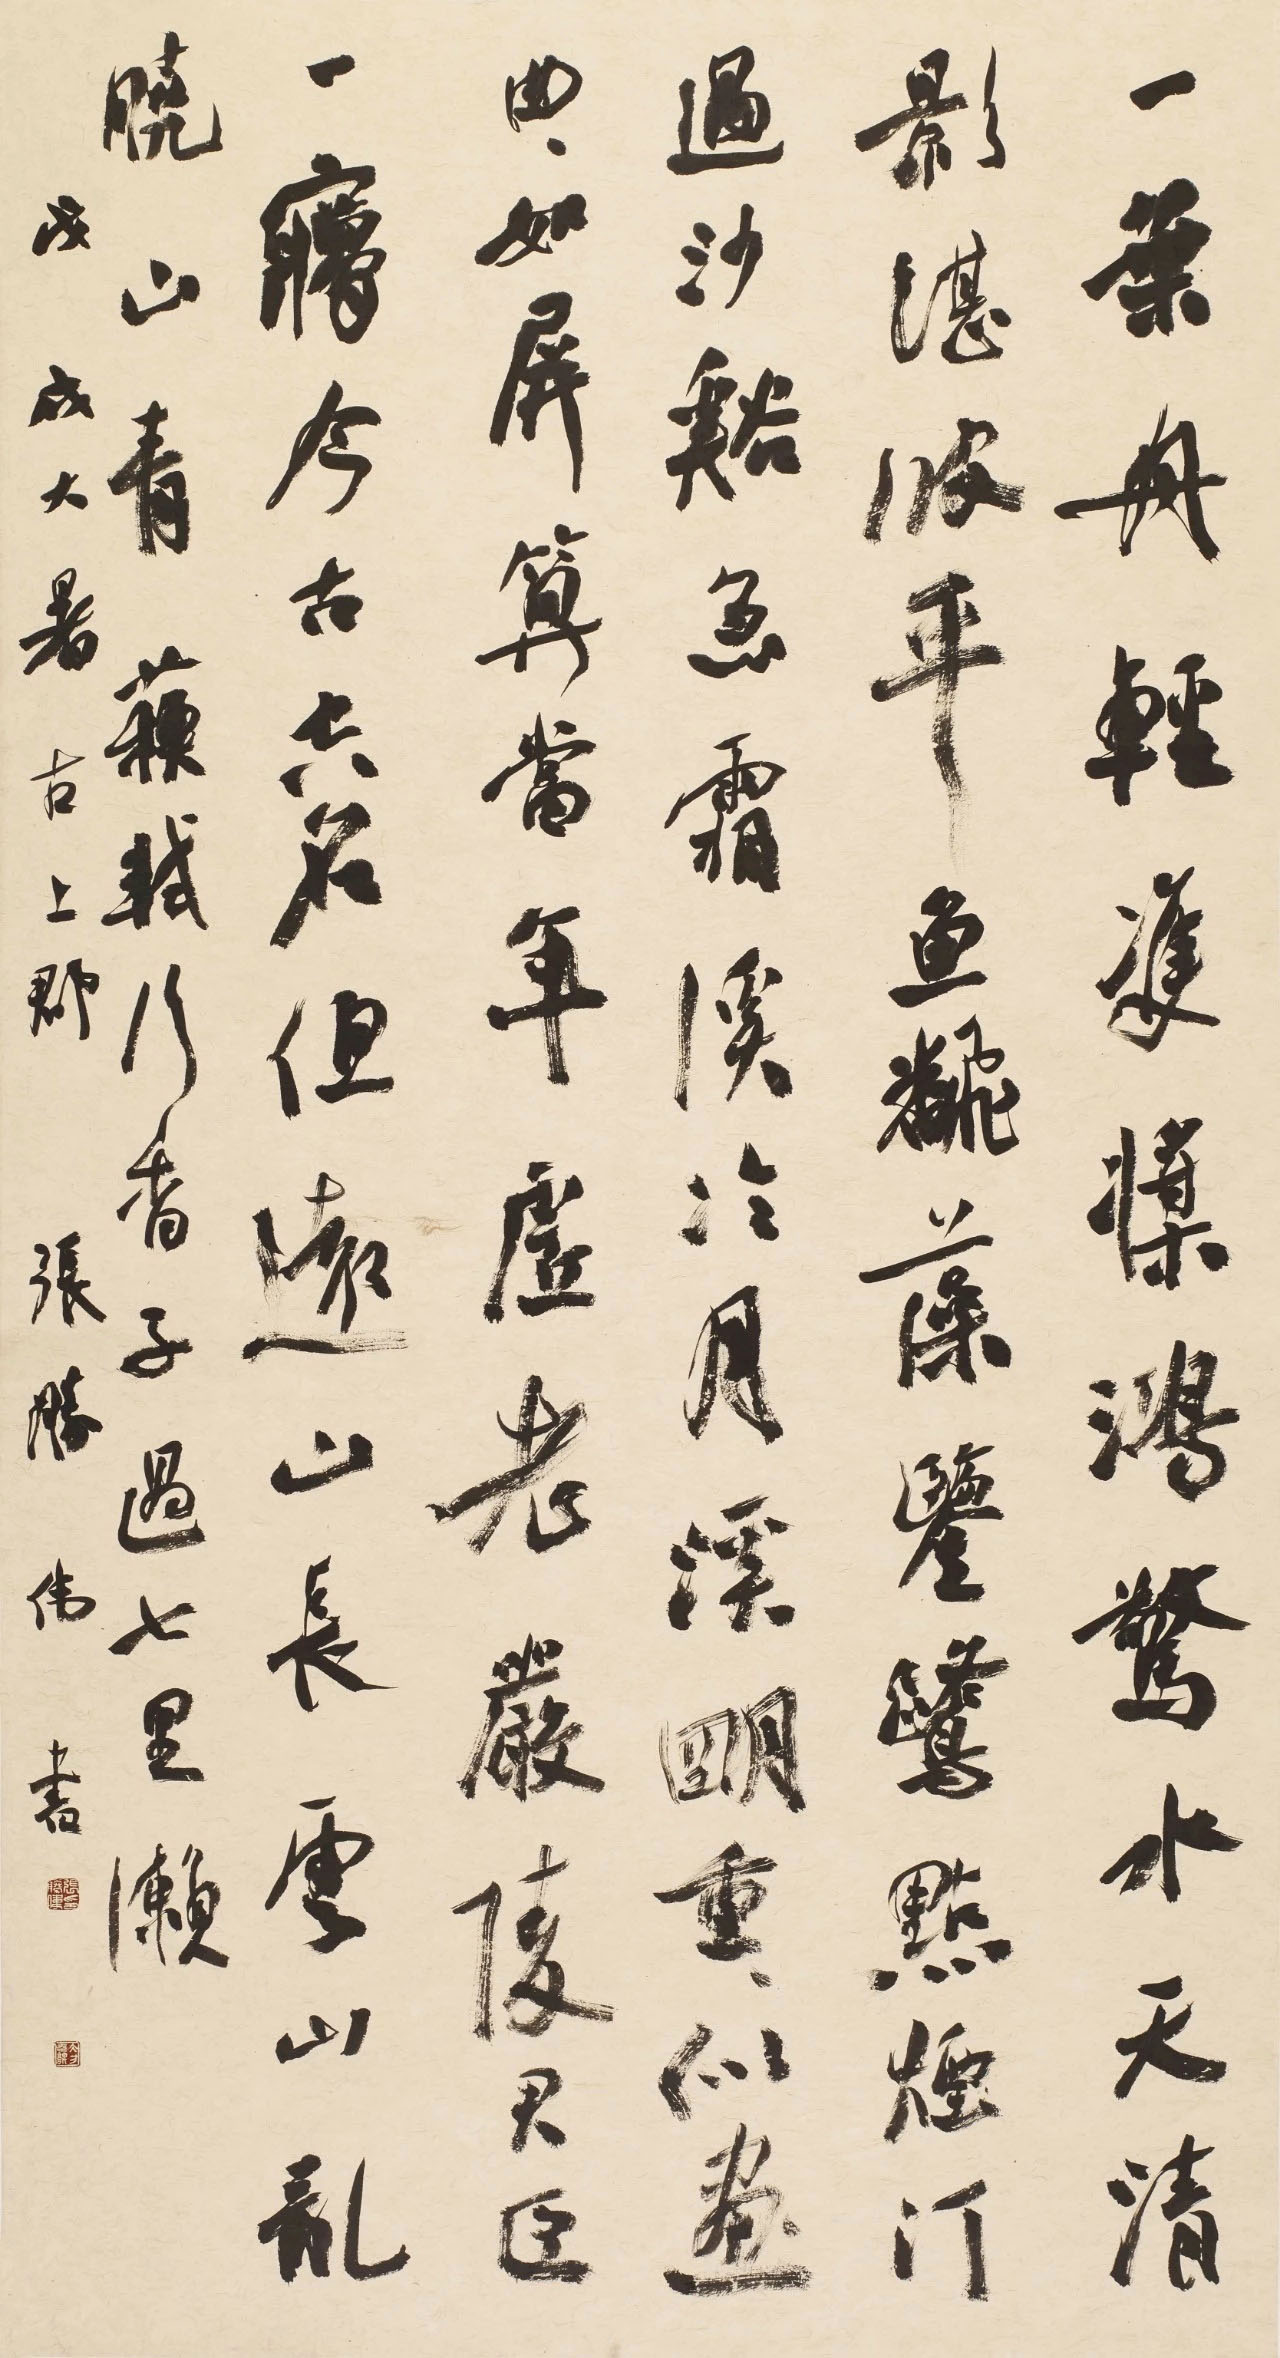 一葉舟輕雙槳鴻驚水天清
影湛波平魚飜藻鑒鷺點煙汀
過沙谿急霜溪冷月溪明重、似畫
曲、如屏算當年虛老嚴陵君臣
一㝱今古空名但遠山長雲山亂
曉山青 蘇軾行香子過七里瀨
戊戌大暑古上郡張勝伟書